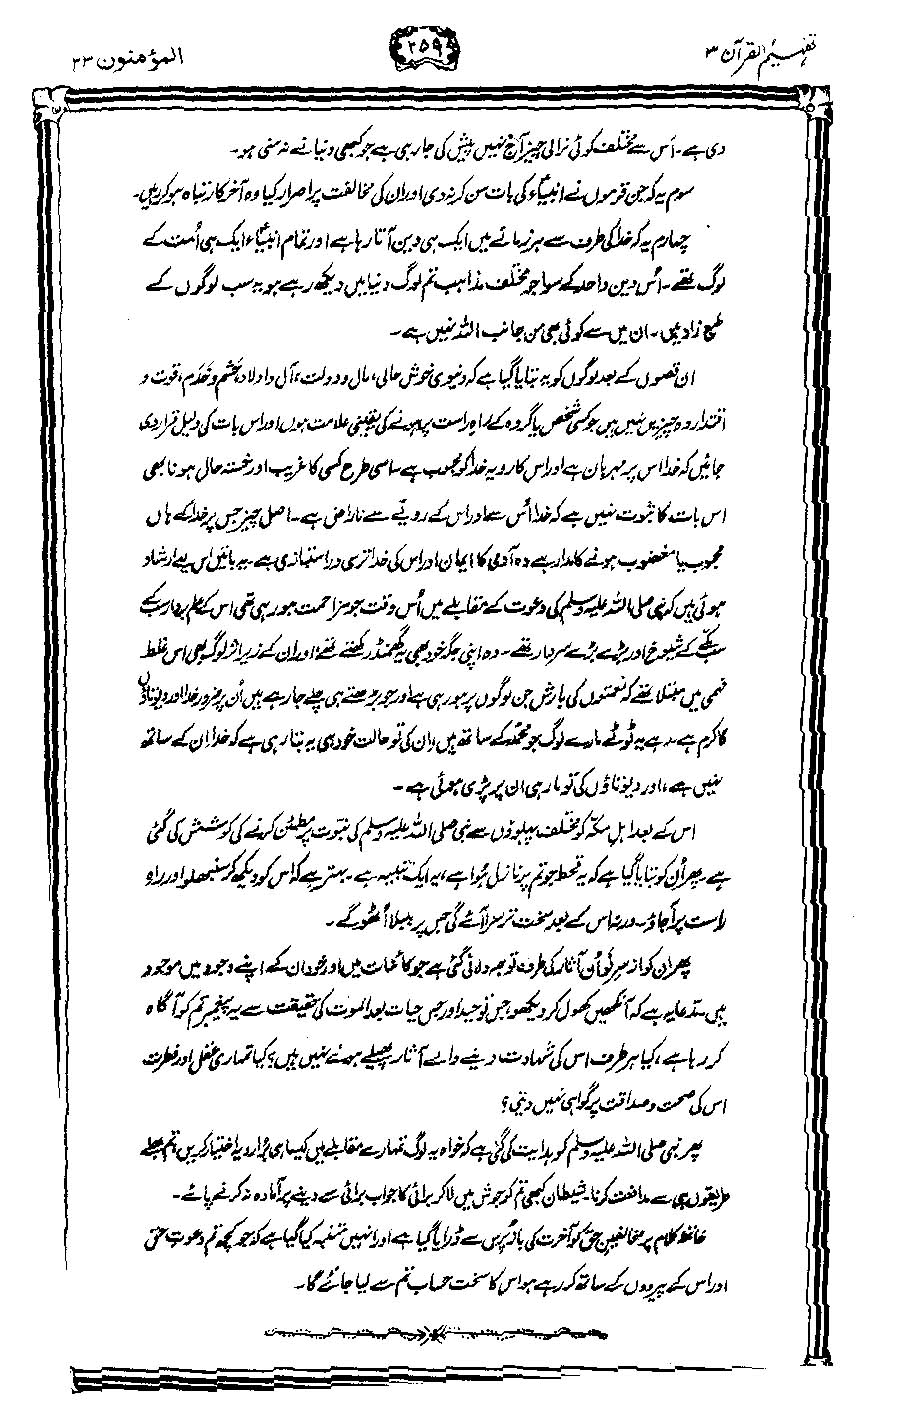 تفہیم القرآن ۳
۲۵۹
المؤمنون ۲۳
دی ہے۔ اس سے مختلف کوئی نرالی چیز آج نہیں پیش کی جا رہی ہے جو کبھی دنیا نے نہ سنی ہو۔
سوم یہ کہ جن قوموں نے انبیاءؑ کی بات سن کر نہ دی اور ان کی مخالفت پر اصرار کیا وہ آخر کار تباہ ہو کر رہیں۔
چہارم یہ کہ خدا کی طرف سے ہر زمانے میں ایک ہی دین آتا رہا ہے اور تمام انبیاءؑ ایک ہی اُمت کے
لوگ تھے۔ اُس دین واحد کے سوا جو مختلف مذاہب تم لوگ دنیا میں دیکھ رہے ہو یہ سب لوگوں کے
طبع زاد ہیں۔ ان میں سے کوئی بھی من جانب اللہ نہیں ہے۔
ان قصوں کے بعد لوگوں کو یہ بتایا گیا ہے کہ دنیوی خوش حالی، مال و دولت، آل و اولاد، حشم و خدم، قوت و
اقتدار وہ چیزیں نہیں ہیں جو کسی شخص یا گروہ کے راہِ راست پر ہونے کی یقینی علامت ہوں اور اس بات کی دلیل قرار دی
جائیں کہ خدا اس پر مہربان ہے اور اس کا رویہ خدا کو محبوب ہے۔ اسی طرح کسی کا غریب اور خستہ حال ہونا بھی
اس بات کا ثبوت نہیں ہے کہ خدا اُس سے اور اس کے رویّے سے ناراض ہے۔ اصل چیز جس پر خدا کے ہاں
محبوب یا مغضوب ہونے کا مدار ہے وہ آدمی کا ایمان اور اس کی خدا ترسی و راستبازی ہے۔ یہ باتیں اس لیے ارشاد
ہوئی ہیں کہ نبی صلی اللہ علیہ وسلم کی دعوت کے مقابلے میں اُس وقت جو مزاحمت ہو رہی تھی اس کے علم بردار سب کے
سب مکّے کے شیوخ اور بڑے بڑے سردار تھے۔ وہ اپنی جگہ خود بھی یہ گھمنڈ رکھتے تھے، اور ان کے زیر اثر لوگ بھی اس غلط
فہمی میں مبتلا تھے کہ نعمتوں کی بارش جن لوگوں پر ہو رہی ہے اور جو بڑھتے ہی چلے جا رہے ہیں اُن پر ضرور خدا اور دیوتاؤں
کا کرم ہے۔ رہے یہ ٹوٹے مارے لوگ جو محمدؐ کے ساتھ ہیں، ان کی تو حالت خود ہی یہ بتا رہی ہے کہ خدا ان کے ساتھ
نہیں ہے، اور دیوتاؤں کی تو مار ہی ان پر پڑی ہوئی ہے۔
اس کے بعد اہل مکہ کو مختلف پہلوؤں سے نبی صلی اللہ علیہ وسلم کی نبوت پر مطمئن کرنے کی کوشش کی گئی
ہے۔ پھر اُن کو بتایا گیا ہے کہ یہ قحط جو تم پر نازل ہُوا ہے، یہ ایک تنبیہ ہے۔ بہتر ہے کہ اس کو دیکھ کر سنبھلو اور راہ
راست پر آجاؤ۔ ورنہ اس کے بعد سخت تر سزا آئے گی جس پر بلبلا اُٹھو گے۔
پھر ان کو از سرِ نو اُن آثار کی طرف توجہ دلائی گئی ہے جو کائنات میں اور خود ان کے اپنے وجود میں موجود
ہیں۔ مدعا یہ ہے کہ آنکھیں کھول کر دیکھو، جس توحید اور جس حیات بعد الموت کی حقیقت سے یہ پیغمبر تم کو آگاہ
کر رہا ہے، کیا ہر طرف اس کی شہادت دینے والے آثار پھیلے ہوئے نہیں ہیں؟ کیا تمہاری عقل اور فطرت
اس کی صحت و صداقت پر گواہی نہیں دیتی؟
پھر نبی صلی اللہ علیہ وسلم کو ہدایت کی گئی ہے کہ خواہ یہ لوگ تمہارے مقابلے میں کیسا ہی بُرا رویہ اختیار کریں، تم بھلے
طریقوں ہی سے مدافعت کرنا۔ شیطان کبھی تم کو جوش میں لا کر برائی کا جواب برائی سے دینے پر آمادہ نہ کرنے پائے۔
خاتمۂ کلام پر مخالفینِ حق کو آخرت کی باز پُرس سے ڈرایا گیا ہے اور انہیں متنبہ کیا گیا ہے کہ جو کچھ تم دعوتِ حق
اور اس کے پیرووں کے ساتھ کر رہے ہو اس کا سخت حساب تم سے لیا جائے گا۔